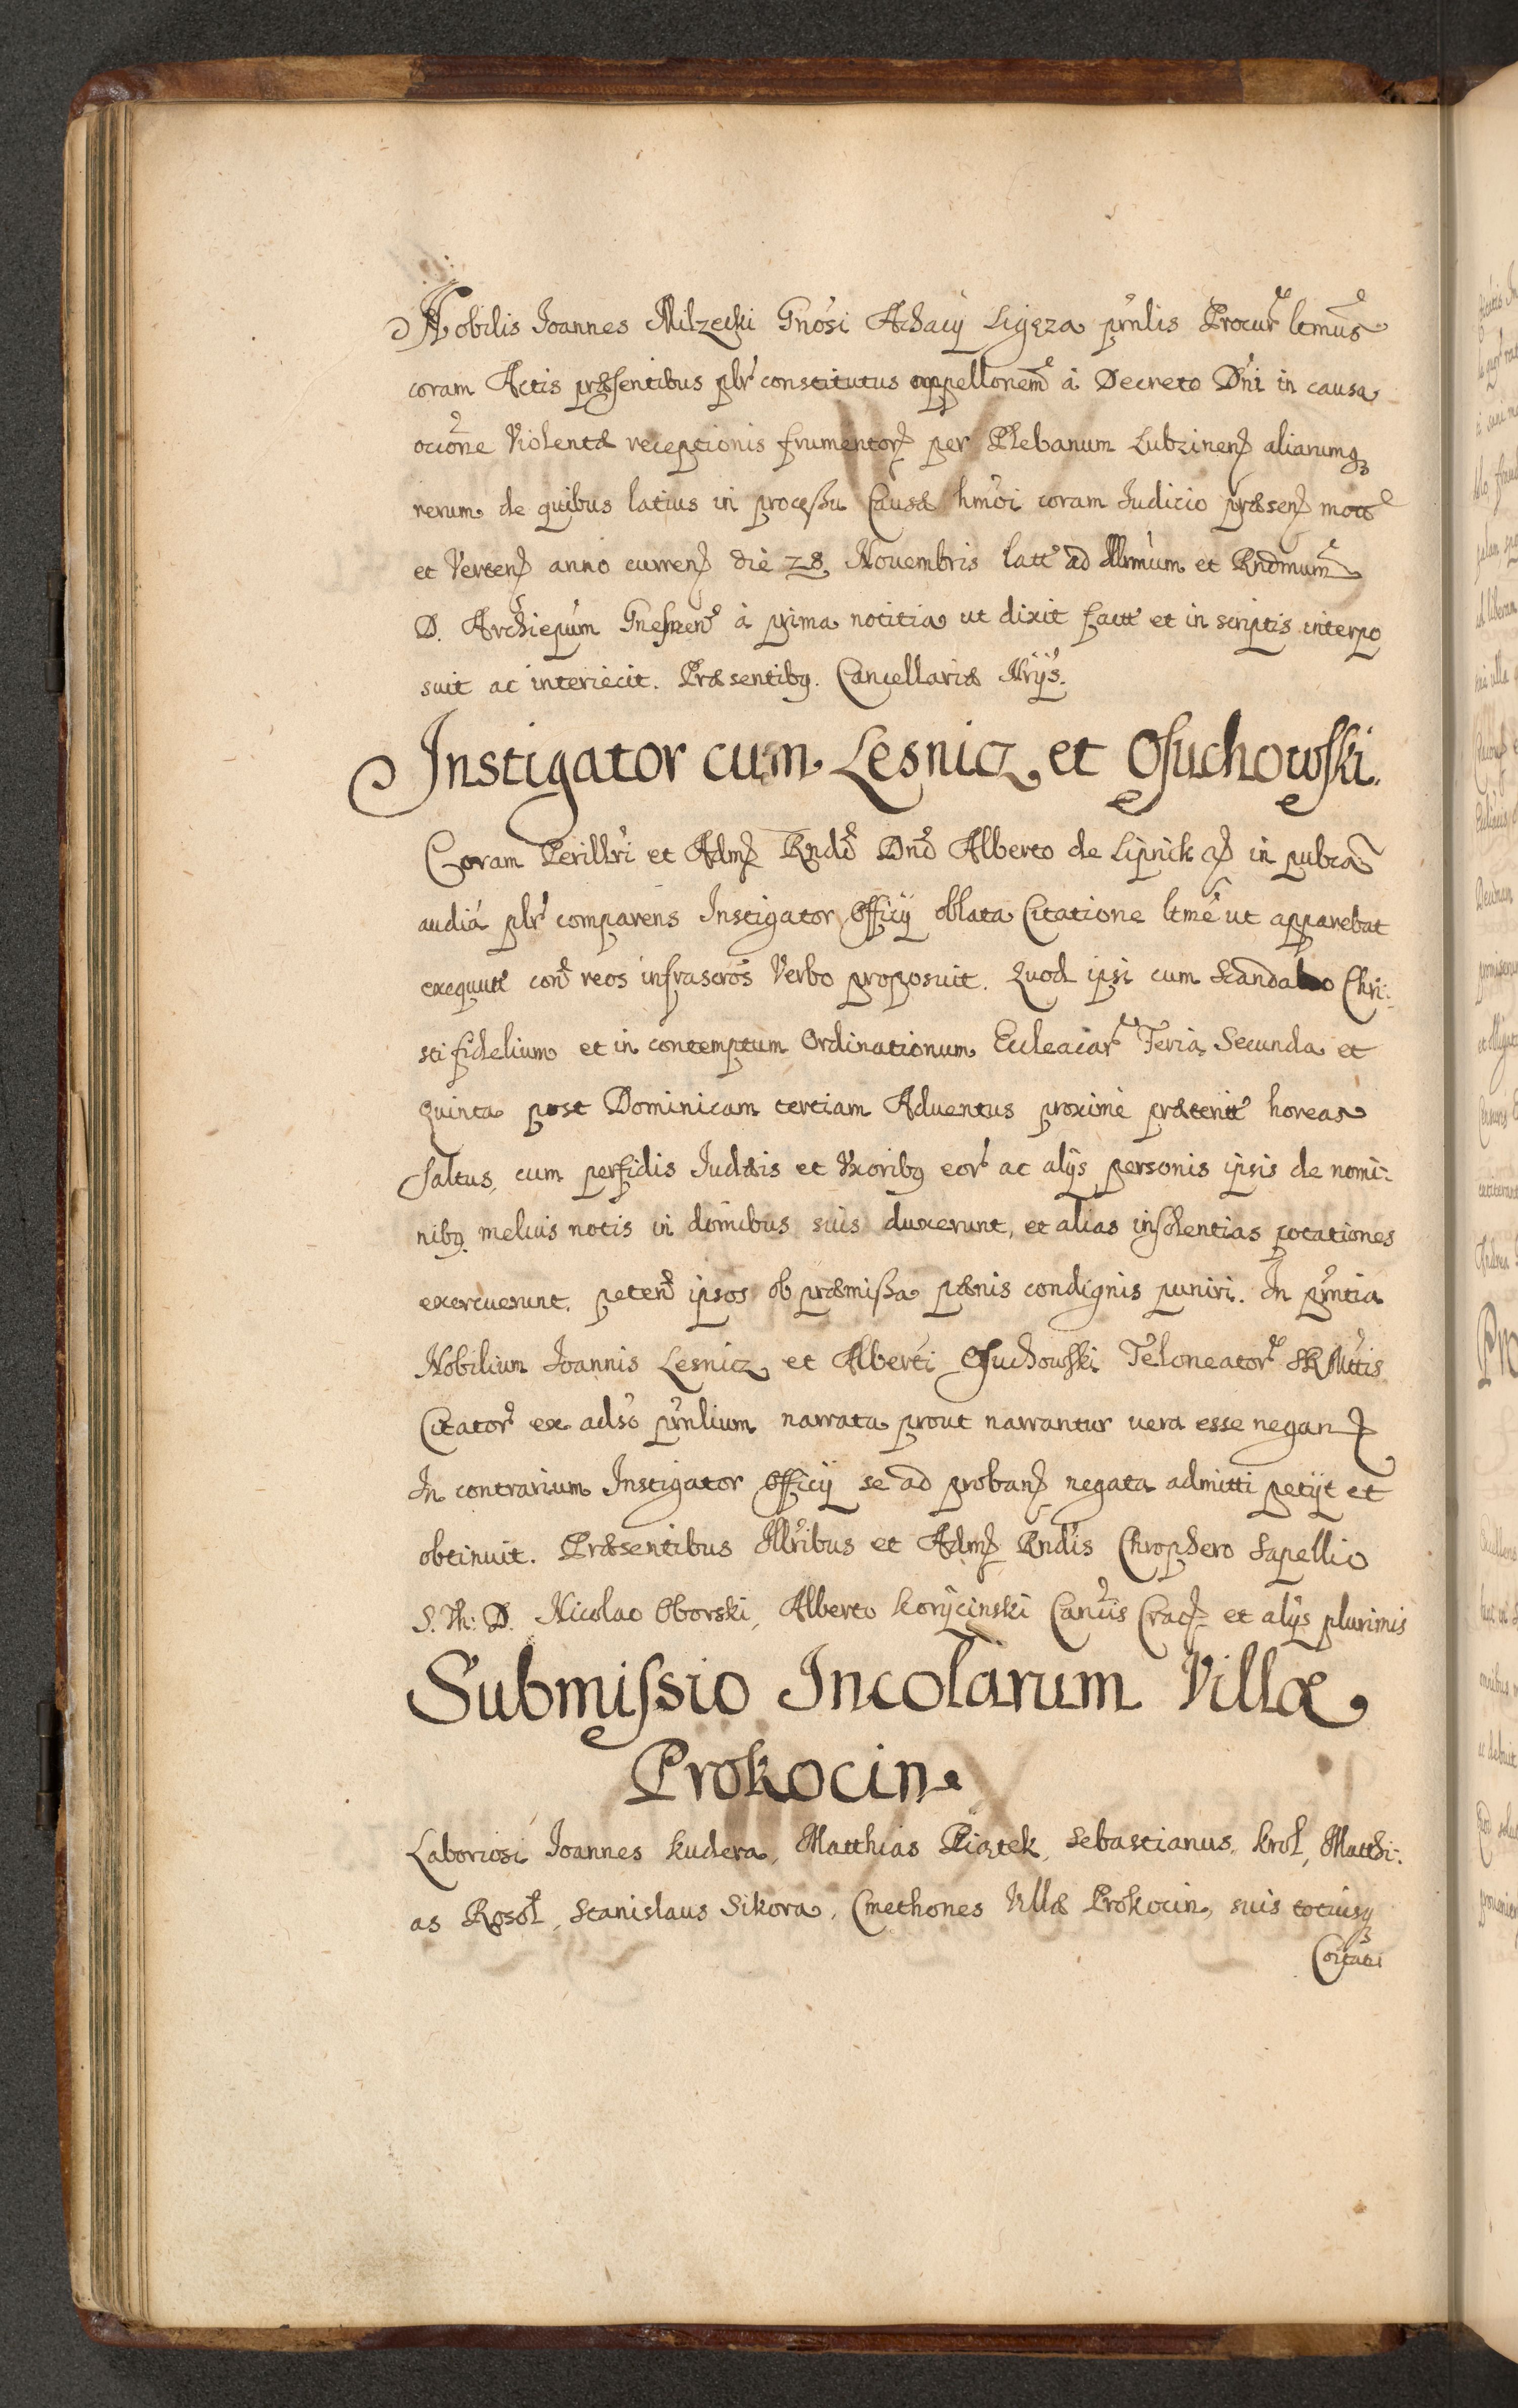 Nobilis Joannes Milzecki Gnosi Achacÿ Ligęza pnńlis Procur ltmus
coram Actis præsentibus plr constitutus appellonem à Decreto Dni in causa
ocióne Violentæ receptionis frumentor per Plebanum Lubzinen aliarumq
rerum de quibus latius in processu Causæ hmoi coram Judicio præsen mott
et Verten anno curren die 28 Nouembris latt ad Illmum et Rndmum
D. Archiepum Gnesnen à prima notitia ut dixit fact et in scriptis interpo
suit ac interiecit. Præsentibq. Cancellariæ Nrÿs.
Instigator cum Lesnicz et Osuchowski.
Coram Perillri et Adm Rndo Dno Alberto de Lipnik in pubca
audia plr comparens Instigator Officÿ oblata Citatione ltme ut apparebat
exequutt con reos infrascros Verbo proposuit. Quod ipsi cum Scandalo Chri:
sti fidelium et in contemptum Ordinationum Eccleaiar Feria Secunda et
Quinta post Dominicam tertiam Aduentus proxime præterit horeas
saltus, cum perfidis Judæis et Vxoribq eor ac alÿs personis ipsis de nomi:
nibq. melius notis in domibus suis duxerunt, et alias insolentias potationes
exercuerunt. peten ipsos ob præmissa pænis condignis puniri. In pnńtia
Nobilium Joannis Lesnicz et Alberti Osuchowski Teloneator SR Mttis
Citator ex adso pnńlium narrata prout narrantur vera esse negan
In contrarium Instigator Officÿ se ad proban negata admitti petÿt et
obtinuit. Præsentibus Illribus et Adm Rndis Chrophero Sapellio
S. Th: D. Nicolao Oborski, Alberto Korÿcinski Canůis Crac et alÿs plurimis
Submissio Incolarum Villæ
Prokocin
Laboriosi Joannes Kudera, Matthias Piątek, Sebastianus Krol, Matthi:
as Rosoł, Stanislaus Sikora, Cmethones Villæ Prokocin, suis totiusq
Coitati